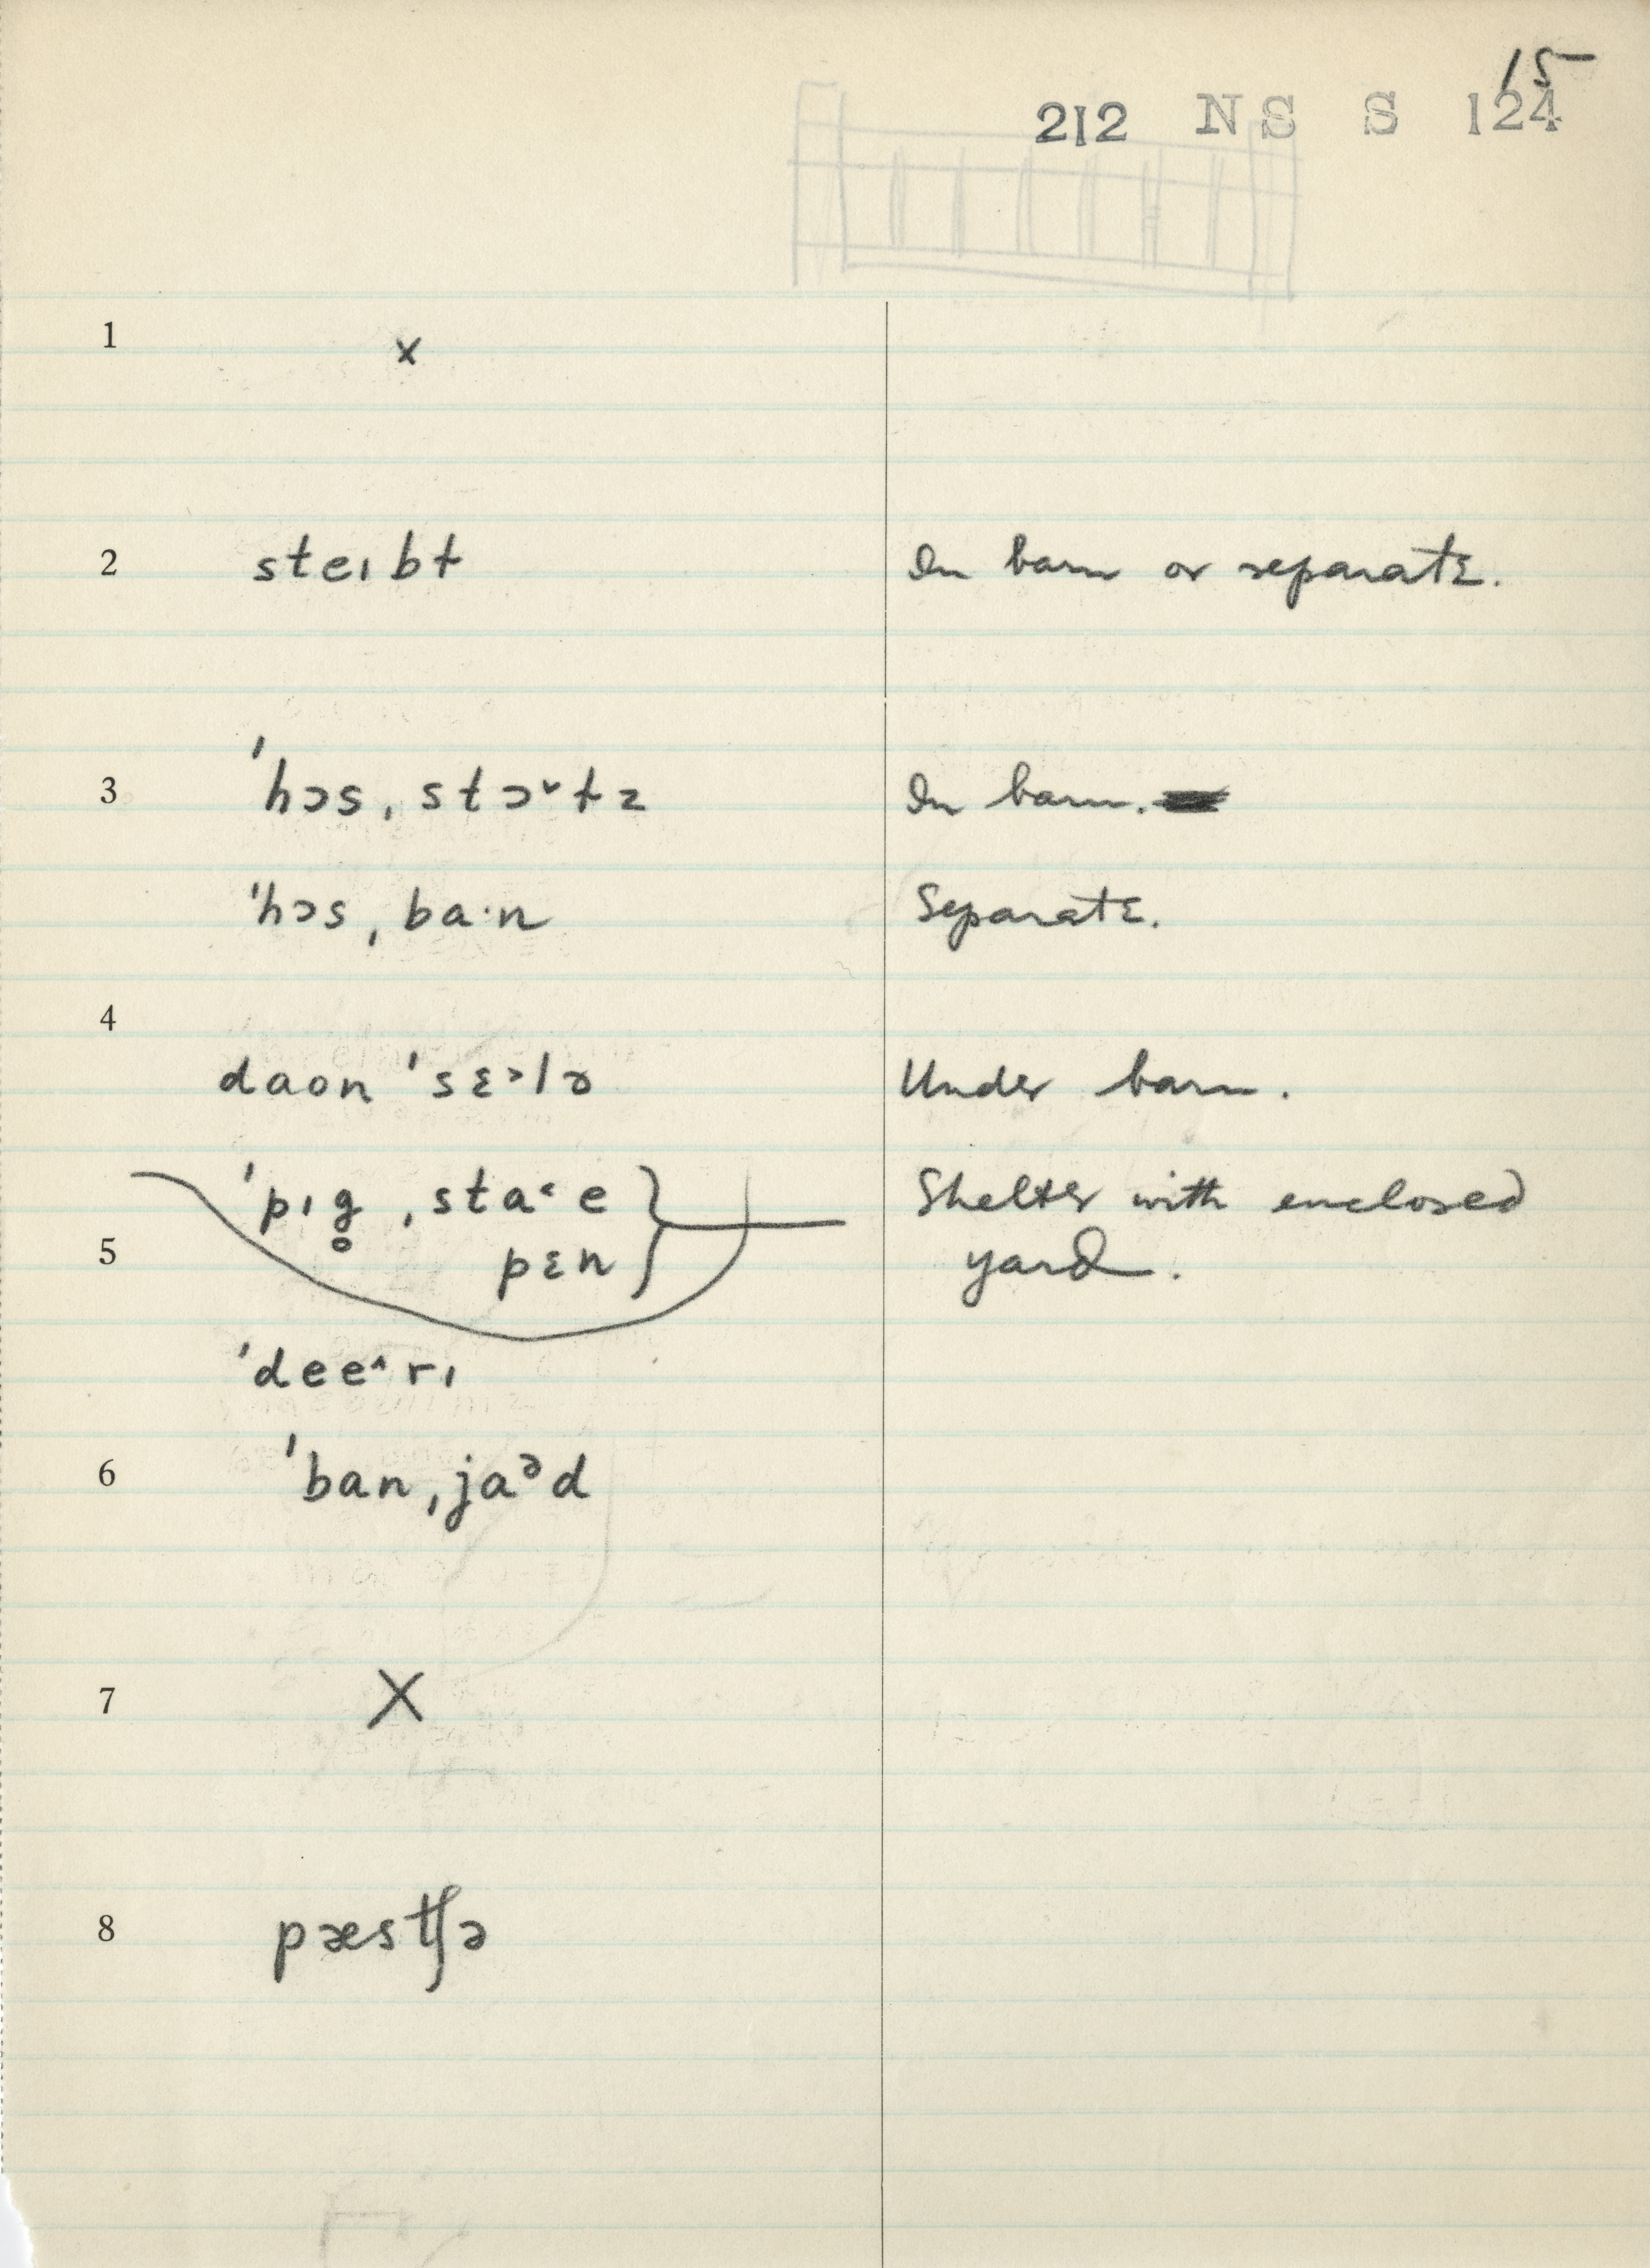 15
212 NS S 124
1 x
2 steɪbɫ In barn or separate.
3 ˈhɔsˌstɔ˅ɫz In barn.
ˈhɔsˌba·n Separate.
4
daon ˈsɛ˃lə Under barn.
ˈpɪg̥ˌsta˂e } Shelter with enclosed
5 pɛn yard.
ˈdee˄rɪ
6 ˈbanˌjaᵊd
7 X
8 pæstʃə